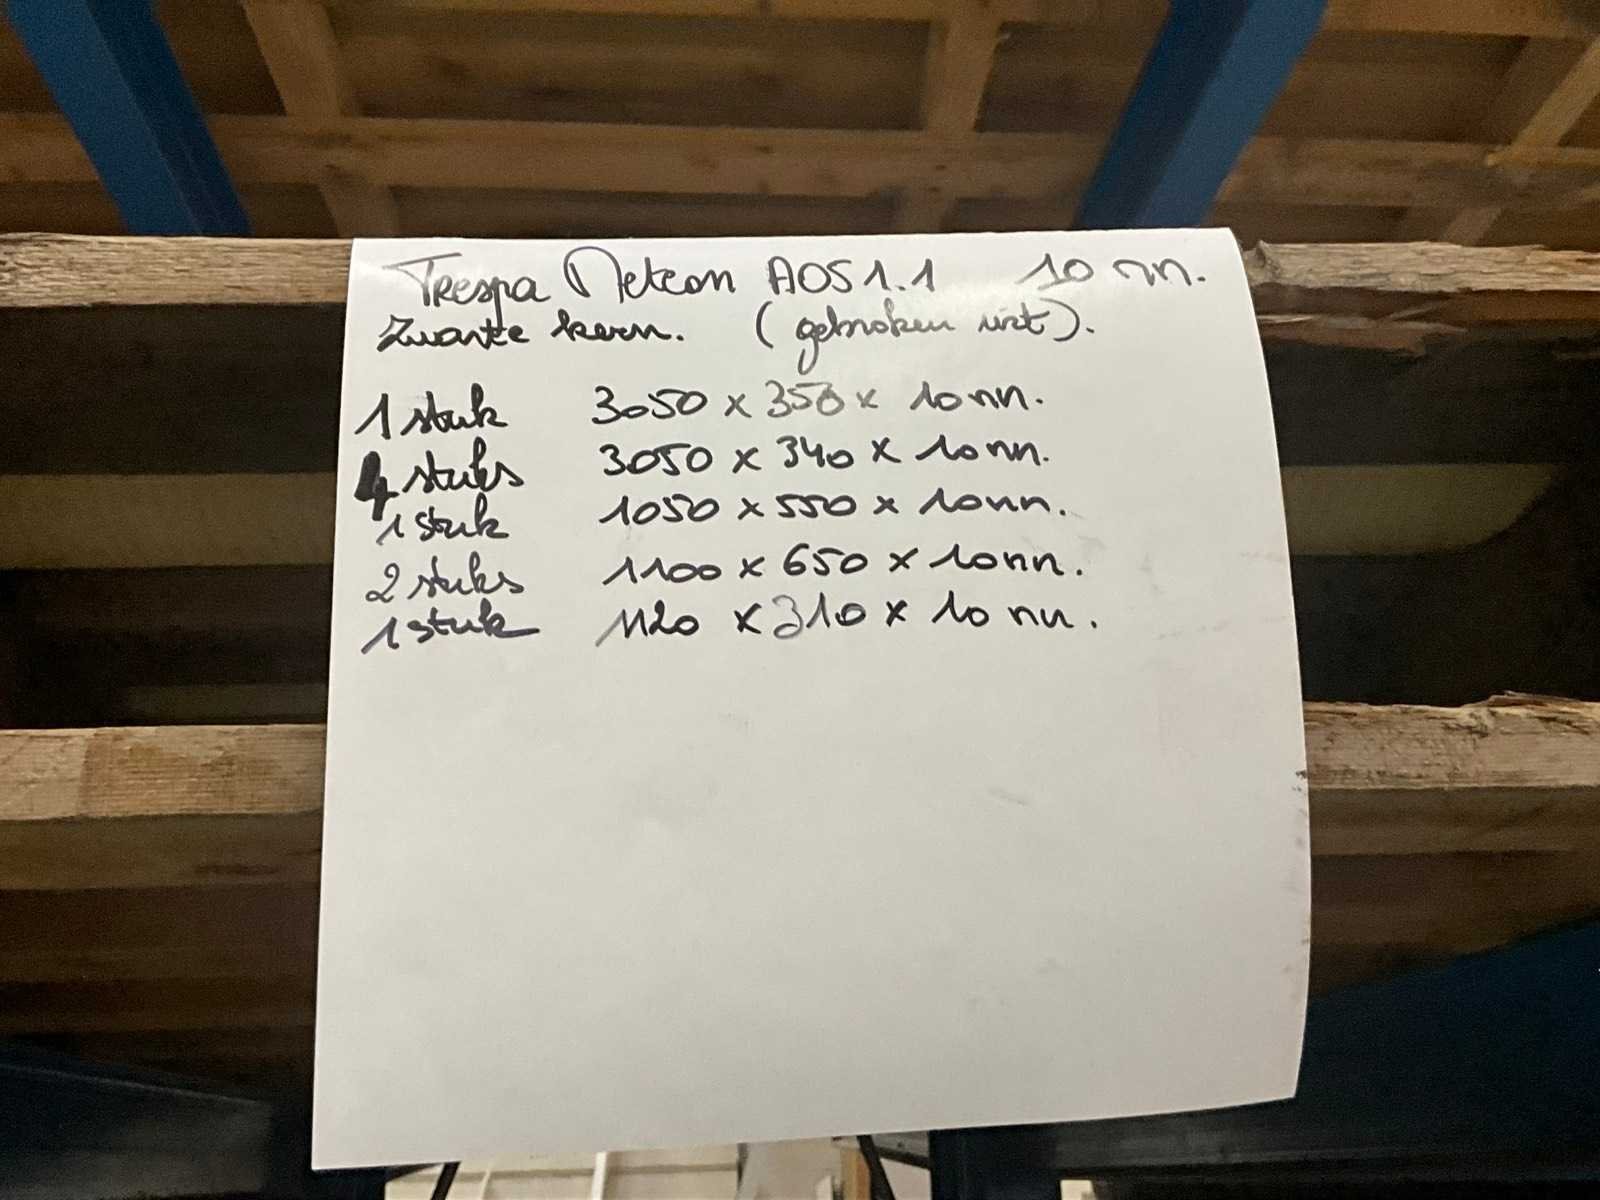 Trespa Meteon A05 1.1 10 mm.
Zwarte kern. (gebroken wit).
1 stuk 3050 x 350 x 10 mm.
4 stuks 3050 x 340 x 10 mm.
1 stuk 1050 x 550 x 10 mm.
2 stuks 1100 x 650 x 10 mm.
1 stuk 1120 x 310 x 10 mm.